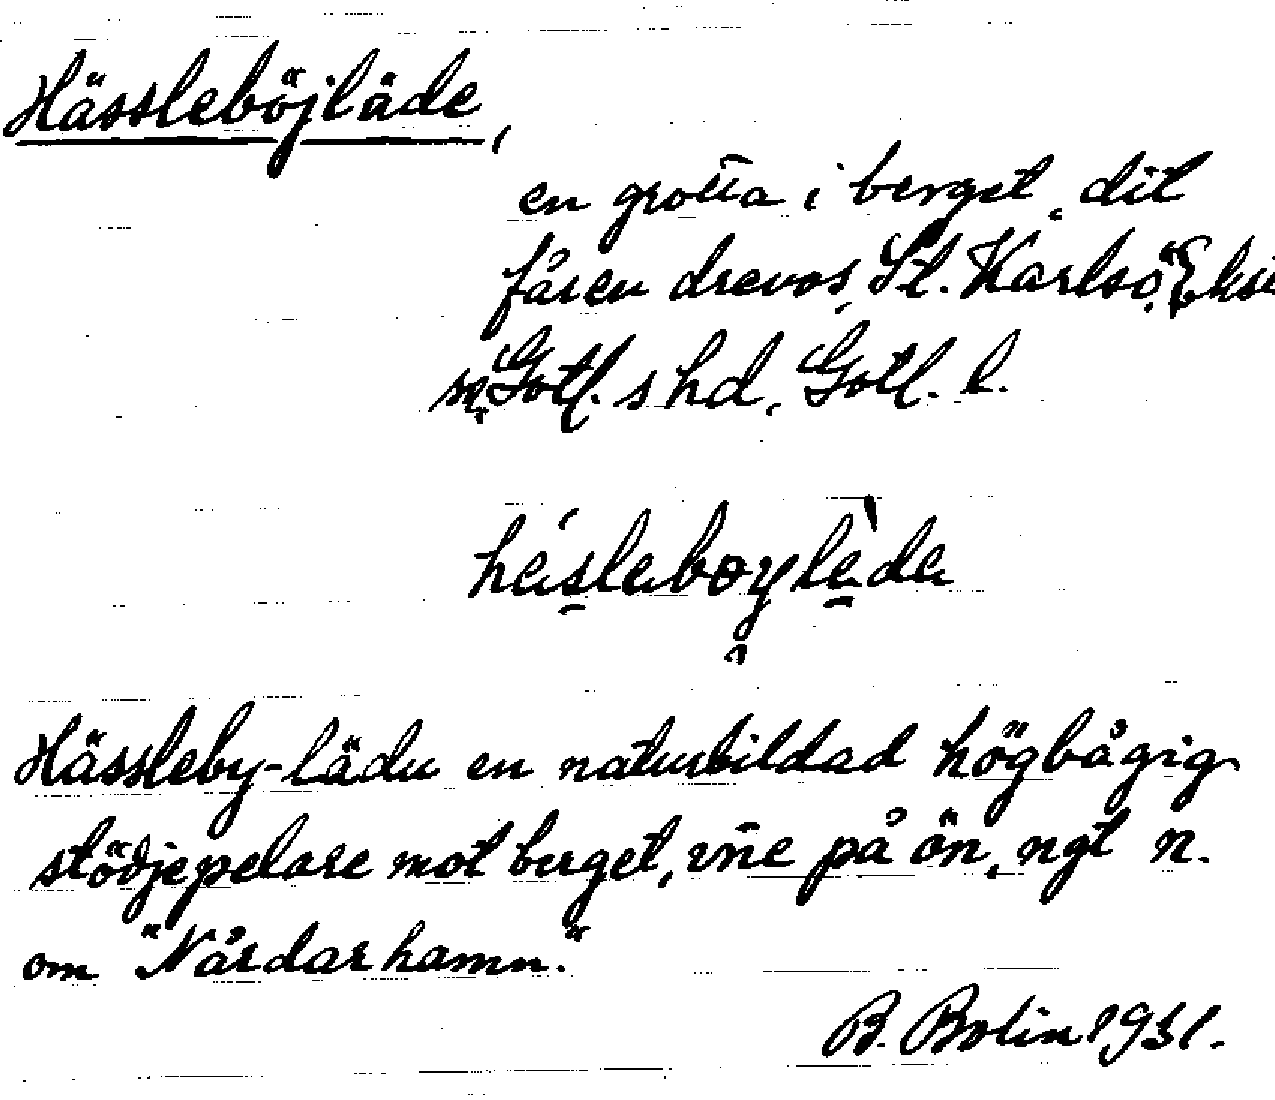 Hässleböjläde,
en grotta i berget, dit
fåren drevos, St. Karlsö, Eksta
sn, Gotl. s hd, Gotl. l.
häslaboylèda
Hässleby-lädu en naturbildad högbågig
stödjepelare mot berget, inne på ön, ngt n.
om "Nårdarhamn."
B. Bolin 1931.